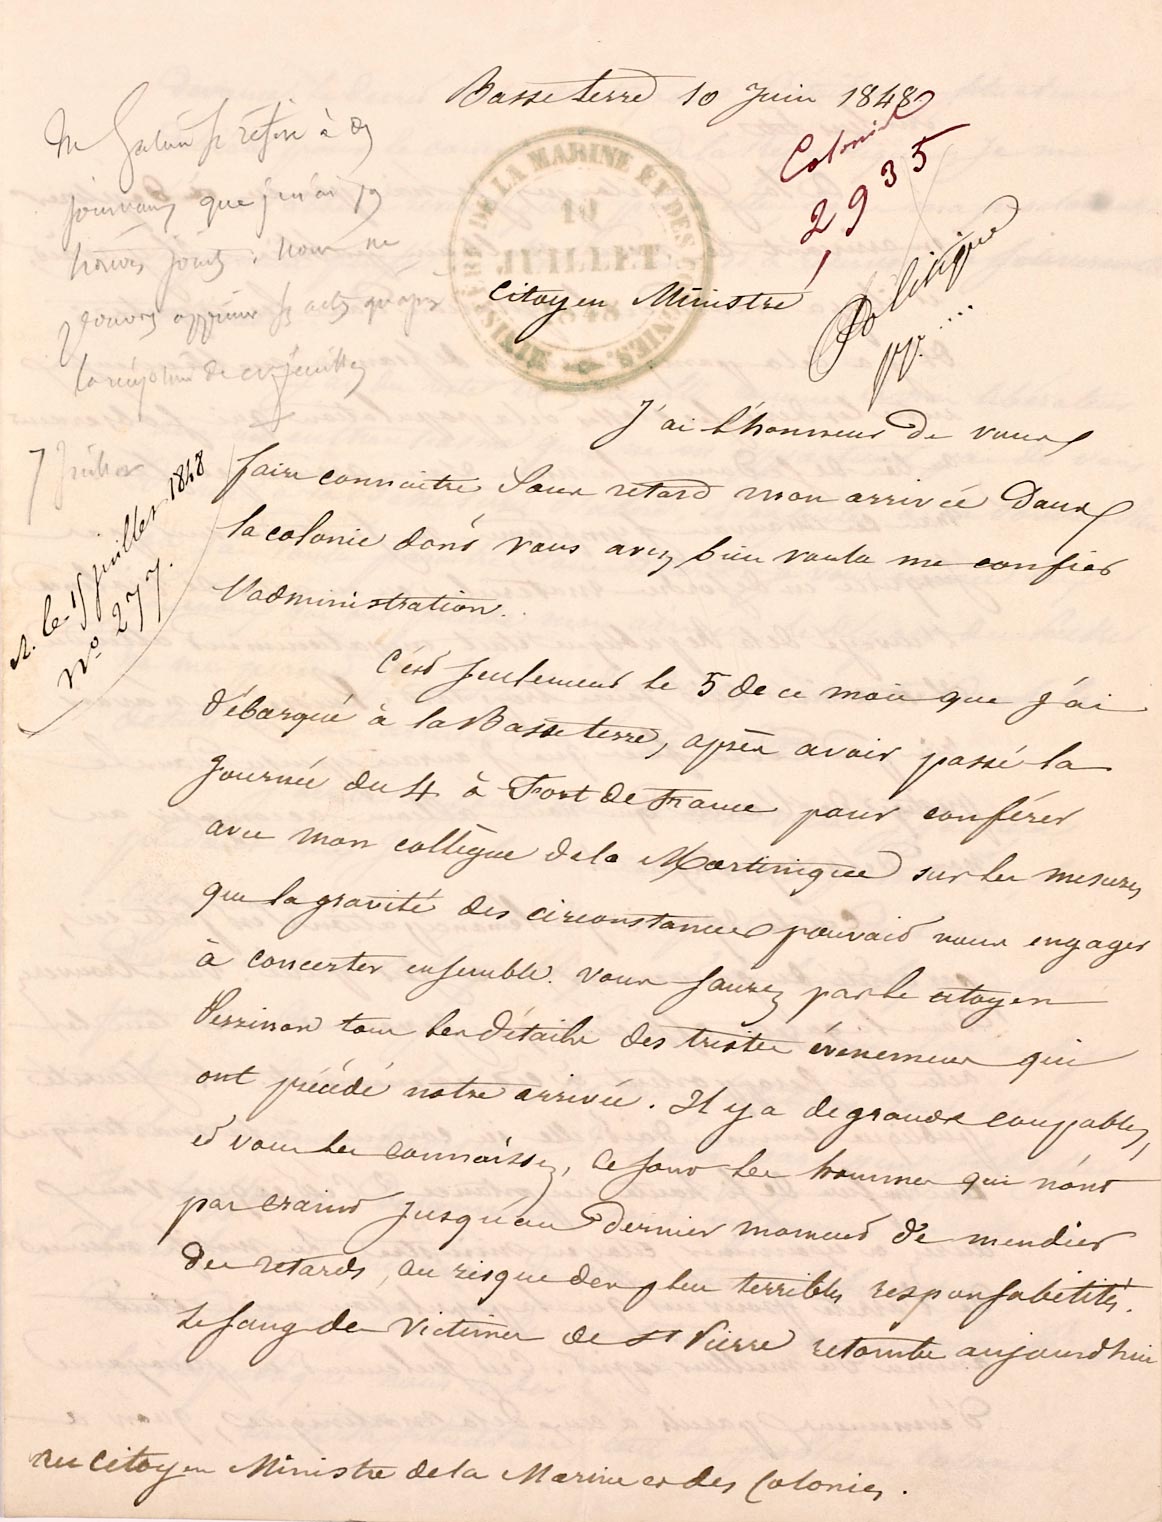 Basse terre 10 Juin 1848
Colonies
2935
Politique
MINISTÈRE DE LA MARINE ET DES COLONIES
10
JUILLET
1848
Citoyen Ministre
que je n'ai
7 Juillet
R. le 15 juillet 1848
No 277.
J'ai l'honneur de vous
faire connaitre sans retard mon arrivée dans
la colonie dont vous avez bien voulu me confier
l'administration.
C'est seulement le 5 de ce mois que j'ai
débarqué à la Basse terre, après avoir passé la
journée du 4 à Fort de France pour conférer
avec mon collègue de la Martinique sur les mesures
que la gravité des circonstances pouvait nous engager
à concerter ensemble. Vous saurez par le citoyen
Perrinon tous les détails des tristes évènemens qui
ont précédé notre arrivée. Il y a de grands coupables,
et vous les connaissez, ce sont les hommes qui n'ont
pas craint jusqu'au dernier moment de mendier
des retards, au risque des plus terribles responsabilités.
Le sang des victimes de St Pierre retombe aujourd'hui
Au Citoyen Ministre de la Marine et des Colonies.